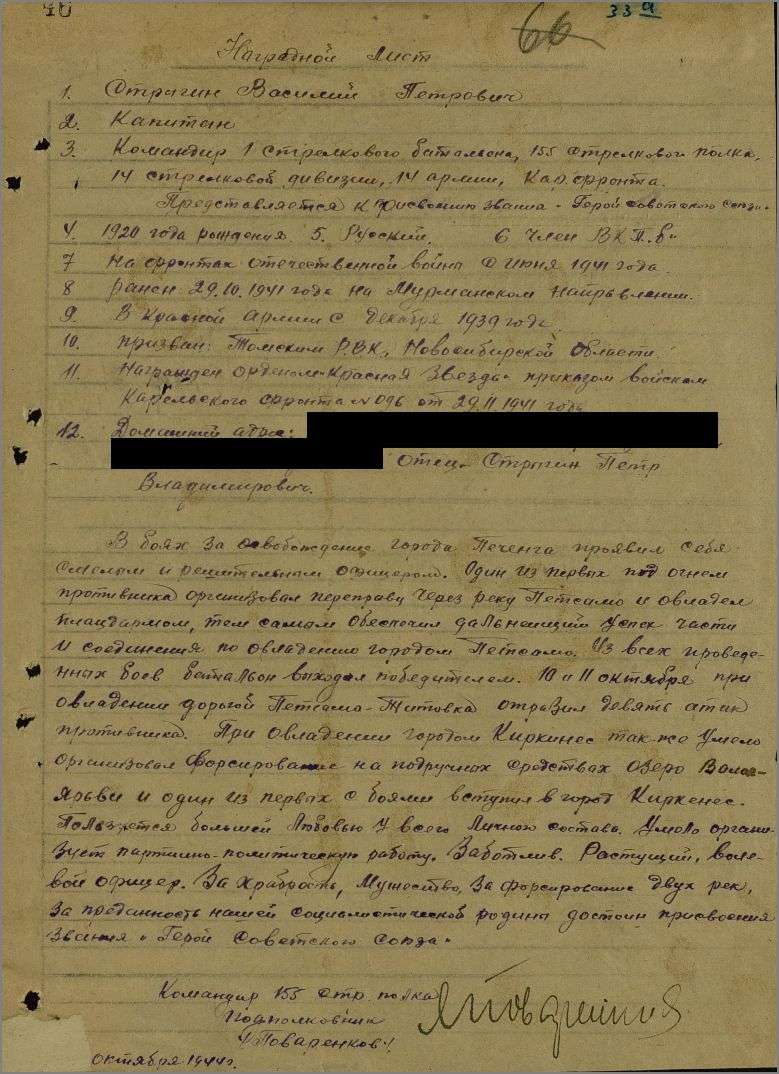 40
66
33а
Наградной лист
1. Стрыгин Василий Петрович
2. Капитан
3. Командир 1 стрелкового батальона, 155 стрелкового полка,
14 стрелковой дивизии, 14 армии, Кар. фронта.
Представляется к присвоению звания "Герой Советского Союза"
4. 1920 года рождения 5. Русский. 6 Член ВКП.б"
7 На фронтах отечественной война с июня 1941 года.
8 ранен 29.10.1941 года на Мурманском направлении.
9. В Красной армии с декабря 1939 года
10. призван: Томским Р.В.К., Новосибирской области.
11. Награжден орденом "Красная звезда" приказом войскам
Карельского фронта № 096 от 29.11.1941 года
12. Домашний адрес:
Отец - Стрыгин Петр
Владимирович.
В боях за освобождение города Печенга проявил себя
смелым и решительным офицером. Один из первых под огнем
противника организовал переправу через реку Петсамо и овладел
плацдармом, тем самым обеспечил дальнейший успех части
и соединения по овладению городом Петсамо. Из всех проведе-
нных боев батальон выходил победителем. 10 и 11 октября при
овладении дорогой Петсамо-Титовка отразил девять атак
противника. При овладении городом Киркинес так-же умело
организовал форсирование на подручных средствах озеро
-ярьви и один из первых с боями вступил в город Киркенес.
Пользуется большей любовью у всего личного состава. Умело органи-
зует партийно-политическую работу. Заботлив. Растущий, воле-
вой офицер. За храбрость, мужество, за форсирование двух рек,
за преданность нашей социалистической родины достоин присвоения
звания "Герой Советского Союза"
Командир 155 стр. полка
подполковник
/Поваренков/
октября 1944 г.